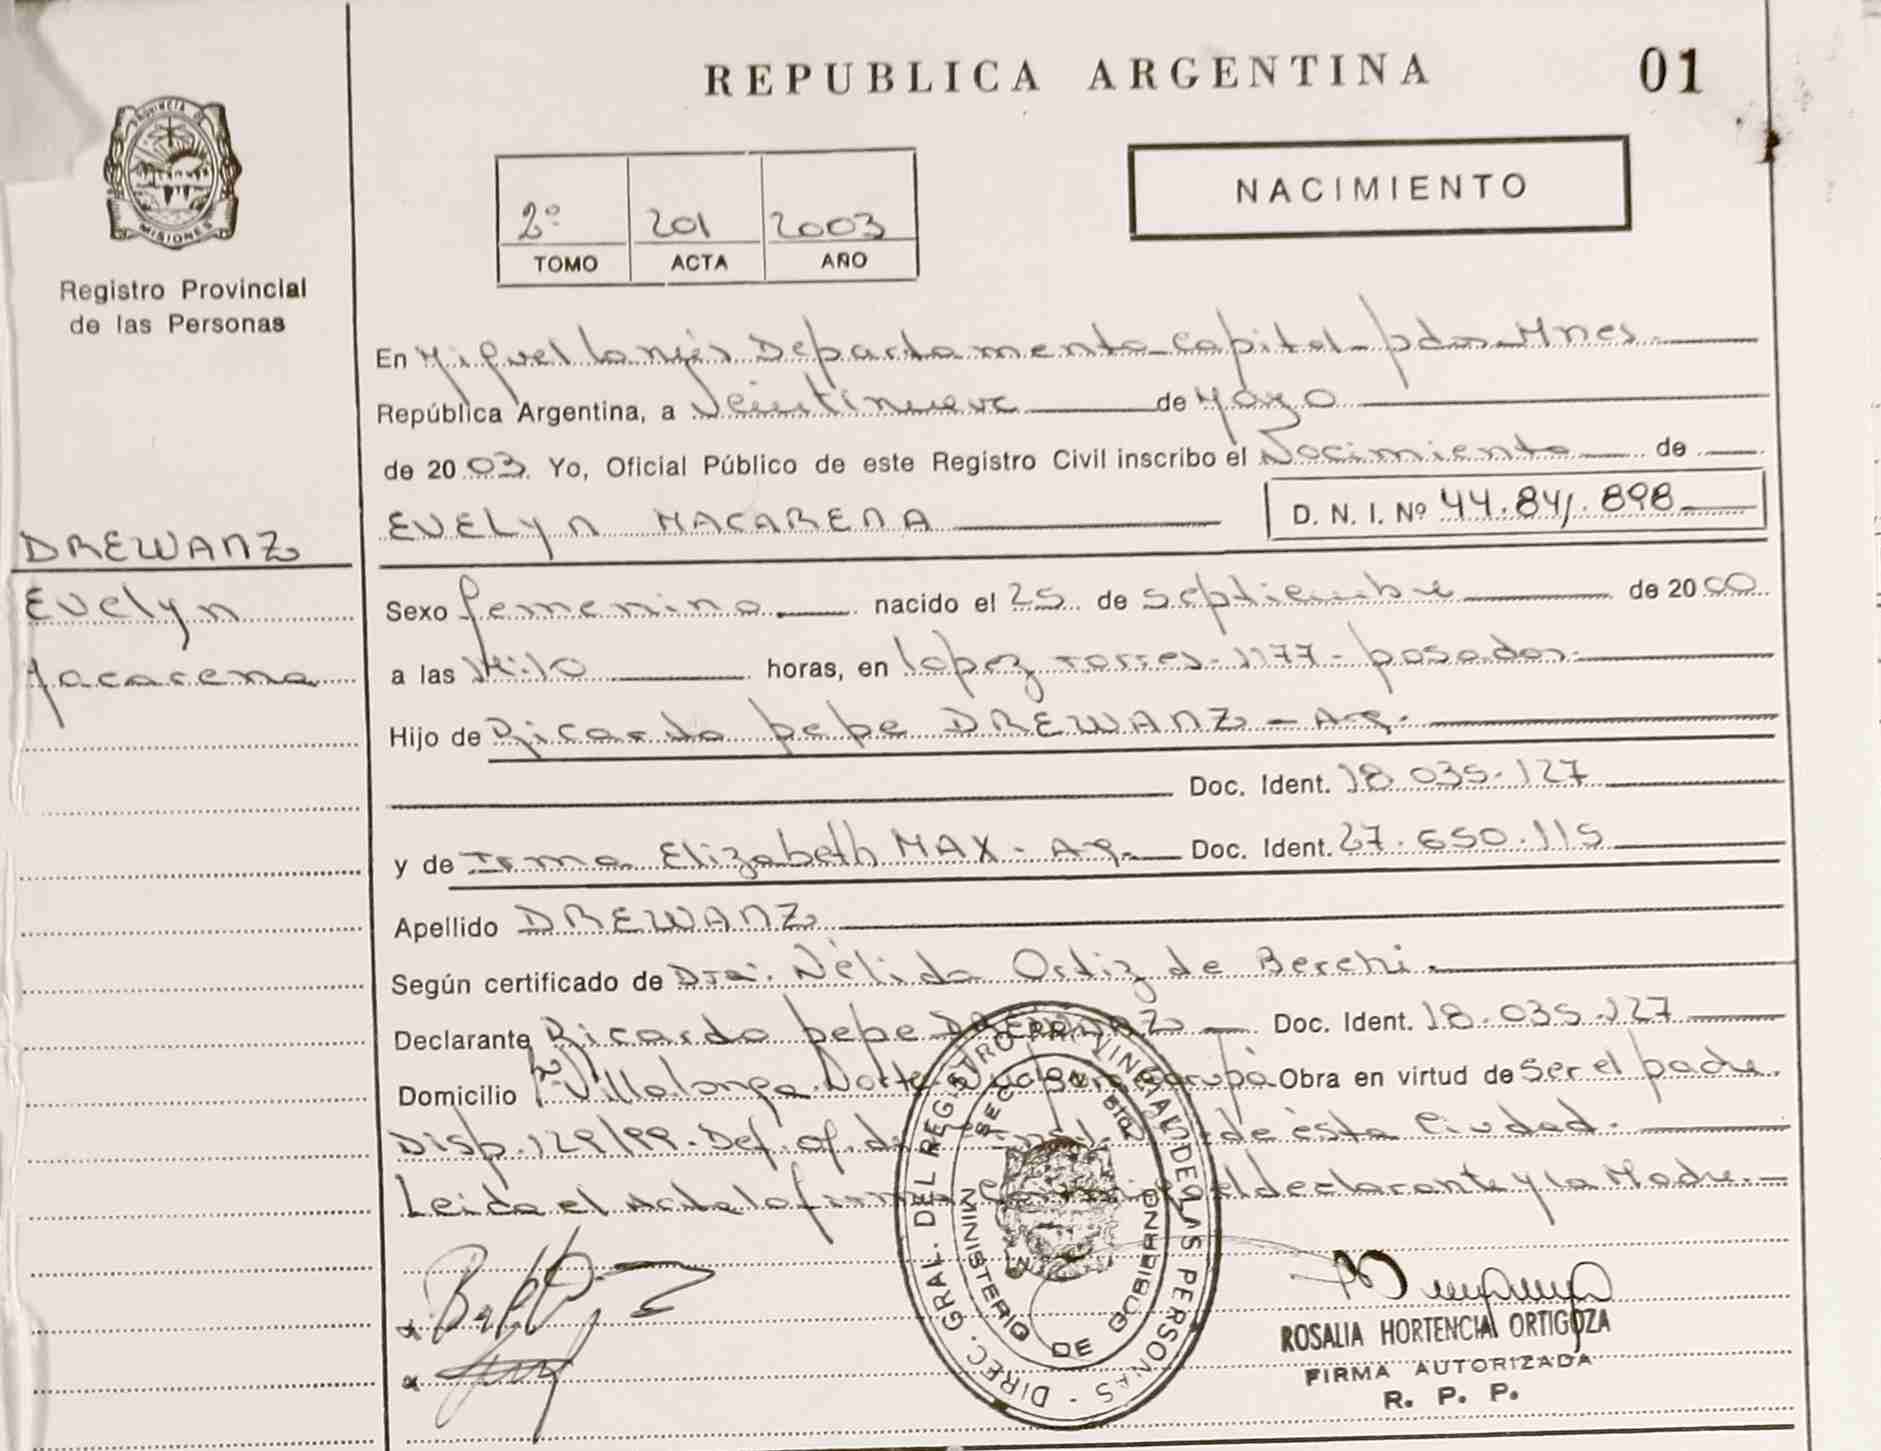 REPUBLICA ARGENTINA
01
PROVINCIA DE MISIONES
Registro Provincial
de las Personas
2º 201 2003
TOMO ACTA AÑO
NACIMIENTO
En Miguel Lanús Departamento Capital - pdas - Mnes.
República Argentina, a Veintinueve de Mayo
de 2003. Yo, Oficial Público de este Registro Civil inscribo el Nacimiento de
EVELYN MACARENA D. N. I. Nº 44.841.898
DREWANZ
Evelyn
Macarena
Sexo femenino nacido el 25 de septiembre de 2000
a las horas, en Lopez Torres - 1177 - posadas.
Hijo de Ricardo pepe DREWANZ - Arg.
Doc. Ident. 18.035.127
y de Irma Elizabeth MAX - Arg. Doc. Ident. 27.650.115
Apellido DREWANZ
Según certificado de Dra. Nélida Ortiz de Berchi.
Declarante Ricardo pepe DREWANZ Doc. Ident. 18.035.127
Domicilio Villalonga Norte Garupá Obra en virtud de Ser el padre.
Disp. 129/99. Def. of. de de ésta Ciudad.
Leida el Acta la firma el declarante y la Madre.
DIREC. GRAL. DEL REGISTRO PROVINCIAL DE LAS PERSONAS
MINISTERIO DE GOBIERNO
ROSALIA HORTENCIA ORTIGOZA
FIRMA AUTORIZADA
R. P. P.